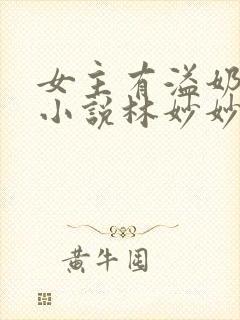 女主有溢奶
小说林妙妙
黄牛围